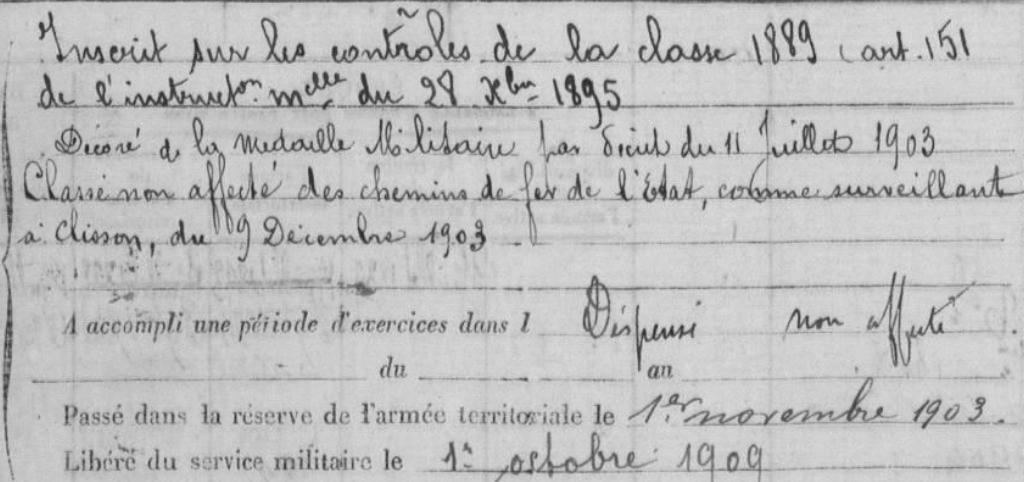 Inscrit sur les contrôles de la classe 1889 (art. 151
de l'instructon. melle du 28 Xbre 1895
Décoré de la medaille Militaire par décret du 11 Juillet 1903
Classé non affecté des chemins de fer de l'Etat, comme surveillant
à Clisson, du 9 Décembre 1903
A accompli une période d'exercices dans l Dispensé non affecté
du an
Passé dans la réserve de l'armée territoriale le 1er novembre 1903.
Libéré du service militaire le 1er octobre 1909